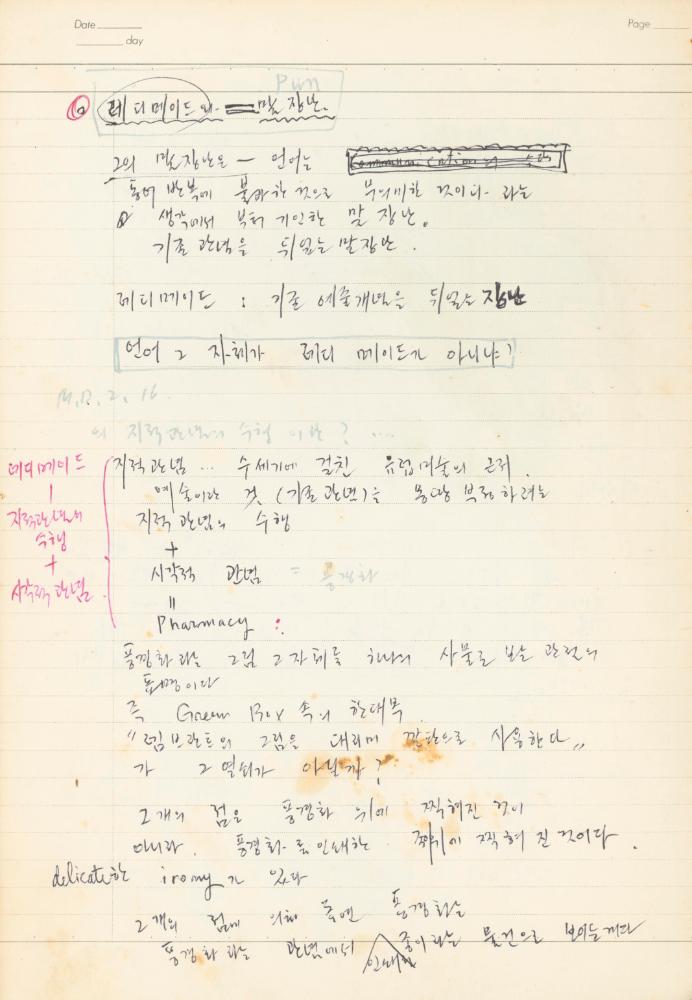 Date
Page
day
Pun
레디메이드와 = 말 장난.
그의 말장난은 — 언어는
동어 반복에 불과한 것으로 무의미한 것이다- 라는
생각에서 부터 기인한 말 장난.
기존 관념을 뒤엎는 말장난.
레디메이드 : 기존 예술개념을 뒤엎는 장난
언어 그 자체가 레디 메이드가 아니냐?
M.D. 2, 16.
의 지적관념의 수행 이란? ...
레디메이드
|
지적관념의
수행
+
시각적 관념
지적관념 ... 수세기에 걸친 유럽미술의 근저.
예술이란 것 (기존 관념)을 몽땅 부정하려는
지적 관념의 수행
+
시각적 관념 = 풍경화
=
Pharmacy :
풍경화라는 그림 그 자체를 하나의 사물로 보는 관념의
표명이다
즉 Green Box 속의 한대목.
"렘브란트의 그림을 대리미 깔판으로 사용한다"
가 그 열쇠가 아닐까?
2개의 점은 풍경화 위에 찍혀진 것이
아니라. 풍경화-를 인쇄한 쪽위에 찍혀 진 것이다.
delicate한 irony가 있다
2개의 점에 의해 풍경화는
풍경화라는 관념에서 인쇄한 종이라는 물건으로 보이는게다